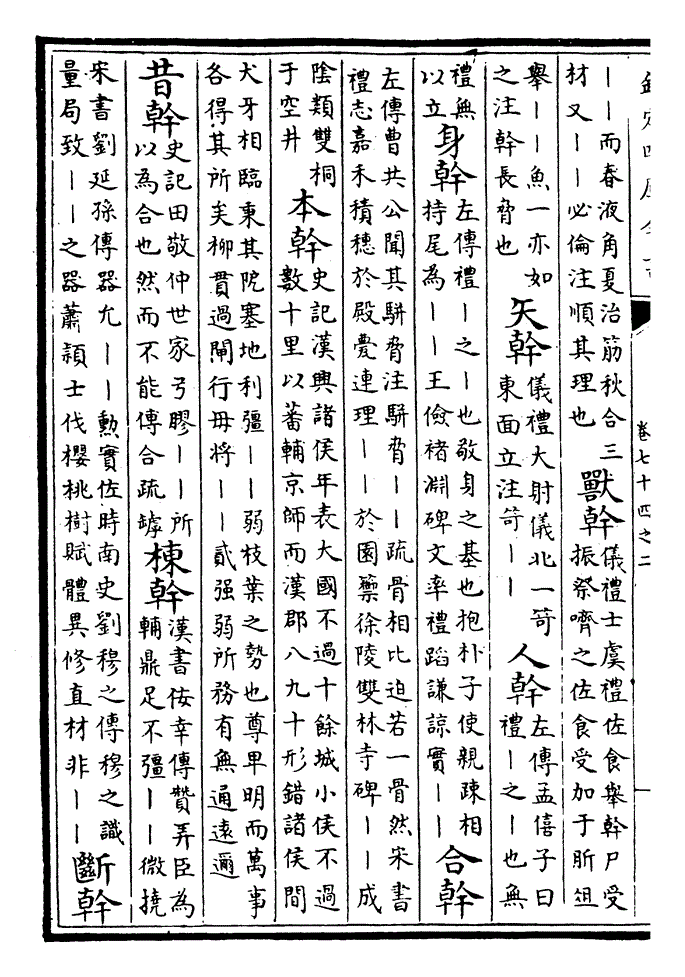 欽定四庫全書
卷七十四之二
——而春液角夏治筋秋合三
材又——必倫注順其理也
獸幹
儀禮士虞禮佐食舉幹尸受
振祭嚌之佐食受加于肵俎
舉——魚一亦如
之注幹長脅也
矢幹
儀禮大射儀北一笴
東面立注笴——
人幹
左傳孟僖子曰
禮—之—也無
禮無
以立
身幹
左傳禮—之—也敬身之基也抱朴子使親疎相
持尾為——王儉褚淵碑文率禮蹈謙諒實——
合幹
左傳曹共公聞其駢脅注駢脅——疏骨相比迫若一骨然宋書
禮志嘉禾積穗於殿甍連理——於園籞徐陵雙林寺碑——成
陰類雙桐
于空井
本幹
史記漢興諸侯年表大國不過十餘城小侯不過
數十里以蕃輔京師而漢郡八九十形錯諸侯間
犬牙相臨秉其阨塞地利彊——弱枝葉之勢也尊卑明而萬事
各得其所矣柳貫過閘行毋將——貳强弱所務有無通遠邇
昔幹
史記田敬仲世家弓膠——所
以為合也然而不能傅合疏罅
棟幹
漢書佞幸傳贊弄臣為
輔鼎足不彊——微撓
宋書劉延孫傳器允——勲實佐時南史劉穆之傳穆之識
量局致——之器蕭頴士伐櫻桃樹賦體異修直材非——
斷幹